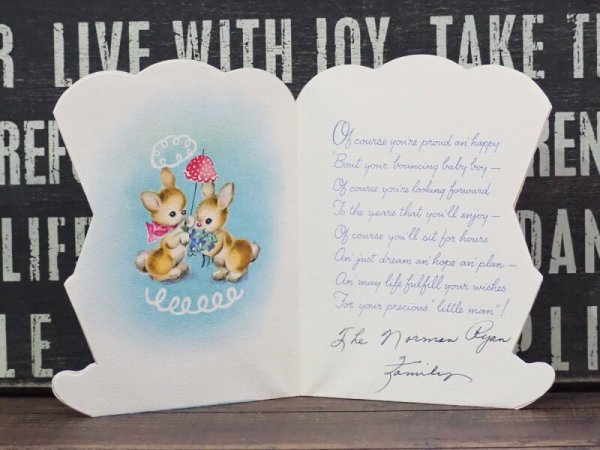 R LIVE WITH JOY TAKE TI
REF
REN
LIF
DAN
LE
PLI
Of course you're proud an' happy
'Bout your bouncing baby boy —
Of course you're looking forward
To the years that you'll enjoy —
Of course you'll sit for hours
An' just dream an' hope an' plan —
An' may life fulfill your wishes
For your precious "little man"!
The Norman Ryan
Family